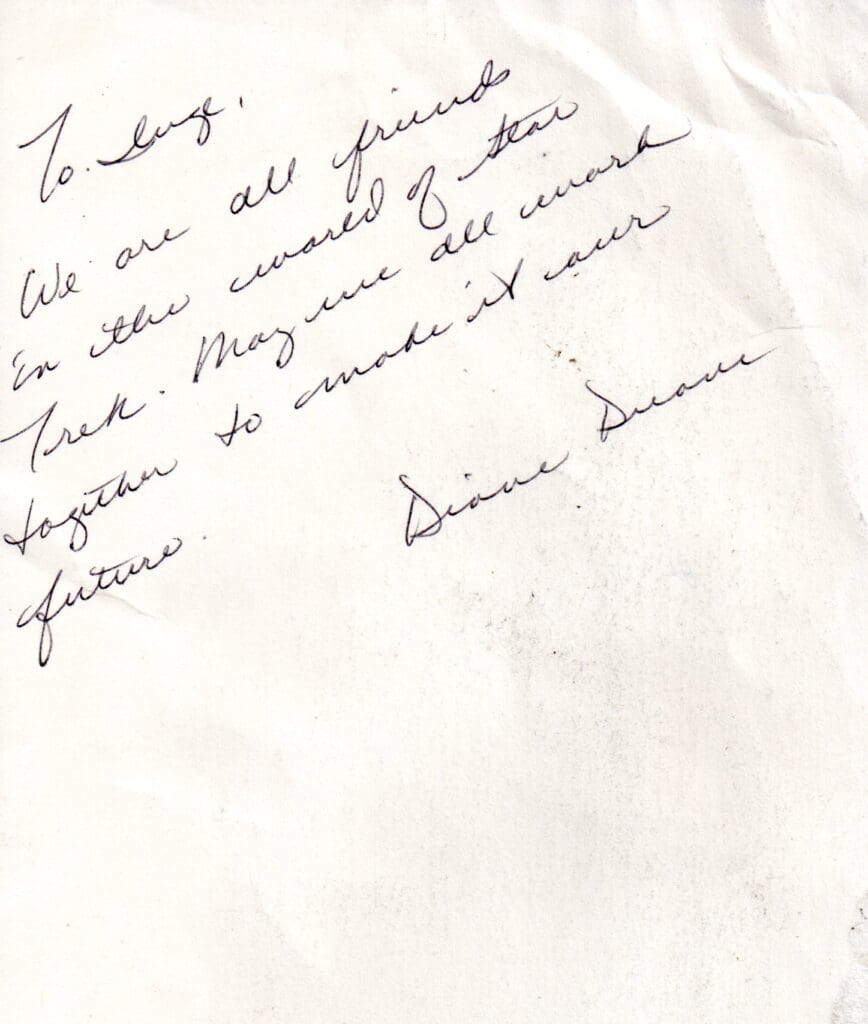 To Inge,
We are all friends
in the world of Star
Trek. May we all work
together to make it our
future.
Diane Duane